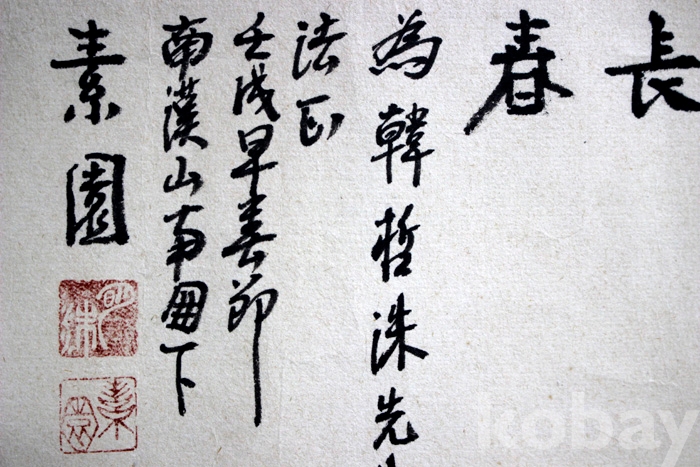 長
春
為韓哲洙先
法正
壬戌早春節
南漢山南下
素園
kobay